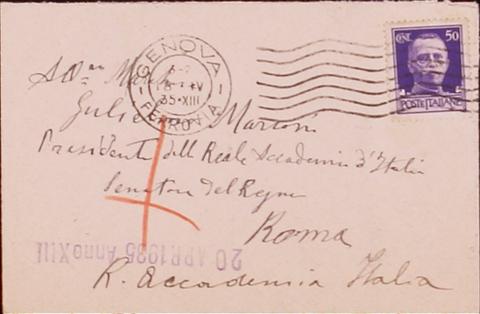 GENOVA
35·XIII
FERROVIA
CENT. 50
POSTE ITALIANE
Presidente dell Reale Accademia d'Italia
Senatore del Regno
Roma
20 APR 1935 Anno XIII
R. Accademia Italia